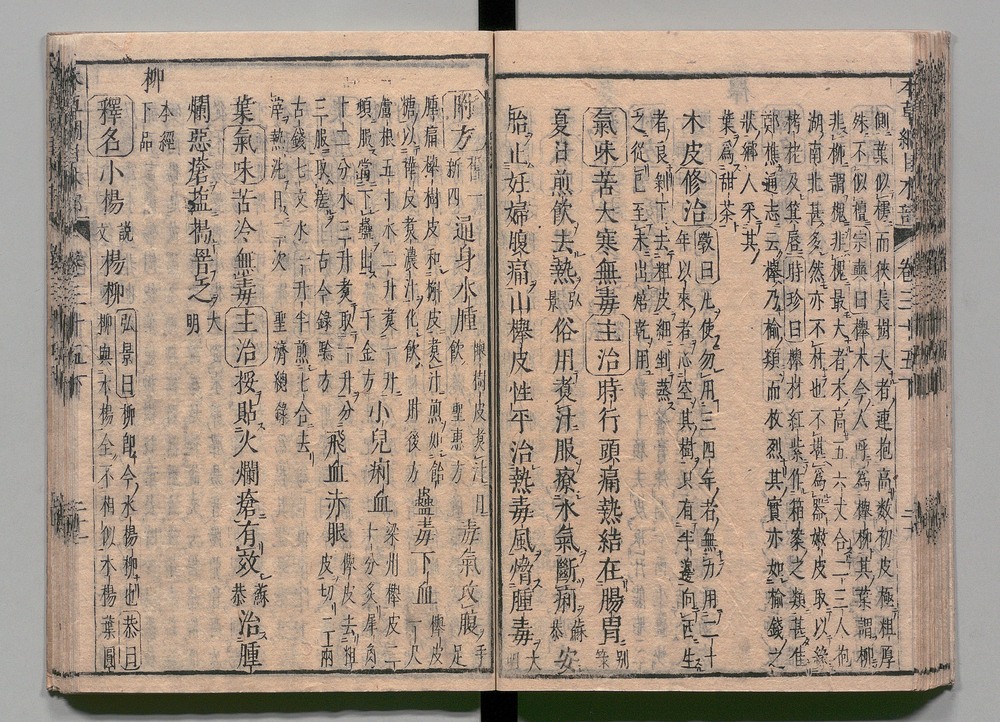 側葉似檀而狹長樹大者連抱高數仞皮極粗厚
殊不似檀宗奭曰櫸木今人呼為櫸柳其葉謂柳
非柳謂槐非槐最大者木高五六丈合二三人抱
湖南北甚多然亦不材也不堪為器嫩皮取以緣
栲栳及箕唇時珍曰櫸材紅紫作箱案之類甚佳
鄭樵通志云櫸乃榆類而枚烈其實亦如榆錢之
狀鄉人采其
葉為甜茶
木皮修治斆曰凡使勿用三四年者無力用二十
年以來者心空其樹只有半邊向西生
者良剝下去粗皮細剉蒸
之從巳至未出焙乾用
氣味苦大寒無毒主治時行頭痛熱結在腸胃別錄
夏日煎飲去熱弘景俗用煮汁服療水氣斷痢蘇恭安
胎止妊婦腹痛山櫸皮性平治熱毒風熁腫毒大明
附方舊一新四通身水腫櫸樹皮煮汁日飲聖惠方毒氣攻腹手足
腫痛櫸樹皮和槲皮煮汁煎如飴
糖以樺皮煮濃汁化飲肘後方蠱毒下血櫸皮一尺
蘆根五寸水二升煮一升
頓服當下蠱出千金方小兒痢血梁州櫸皮二
十分炙犀角
十二分水三升煮取一升分
三服取瘥古今錄驗方飛血赤眼櫸皮去粗皮切二兩
古錢七文水一升半煎七合去
滓熱洗日二次聖濟總錄
葉氣味苦冷無毒主治挼貼火爛瘡有效蘇恭治腫
爛惡瘡鹽搗罯之大明
柳本經下品
釋名小楊說文楊柳弘景曰柳即今水楊柳也恭曰
柳與水楊全不相似水楊葉圓